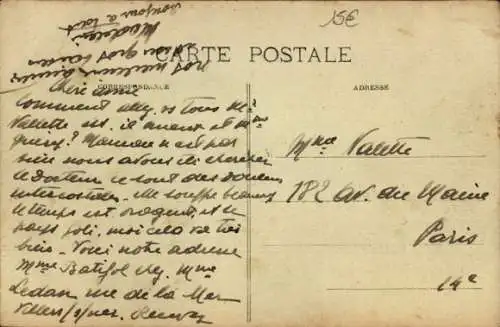 15€
Bonjour à tout
nos meilleurs
CARTE POSTALE
CORRESPONDANCE
ADRESSE
Chère amie
Comment allez vs tous Mr
Valette est-il mieux et Mme
? Maman n'est pas
bien nous avons dû chercher
le Docteur ce sont des douleurs
intercostales. Elle souffre beaucoup
le temps est orageux, et le
pays joli, moi cela va très
bien. Voici notre adresse
Mme Batifol chez Mme
Ledan rue de la Mer
Mme Valette
182 av. du Maine
Paris
14e